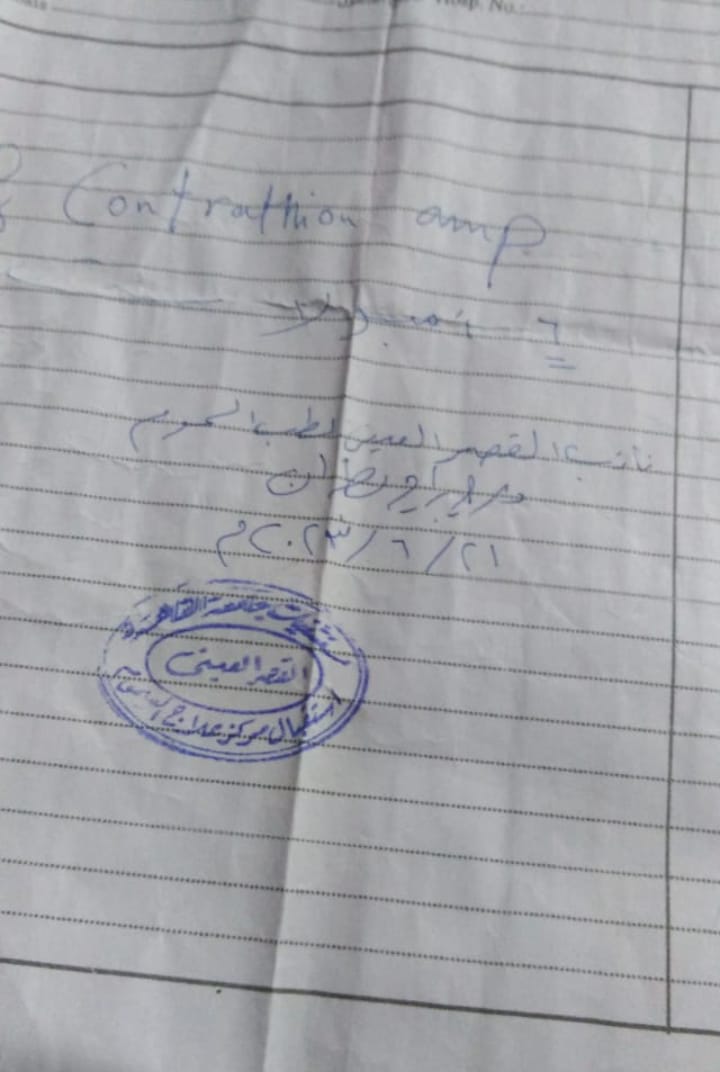 Hosp. No.:
Contrathion amp
٦ أمبولات
نائب القصر العينى لطب السموم
٢٠٢٣/٦/٢١م
مستشفيات جامعة القاهرة
القصر العينى
استقبال مركز علاج التسمم